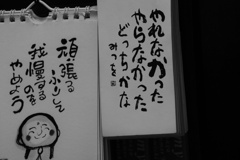 やれなかった
やらなかった
どっちかな
みつを
頑張る
ふりして
我慢する
のを
やめよう